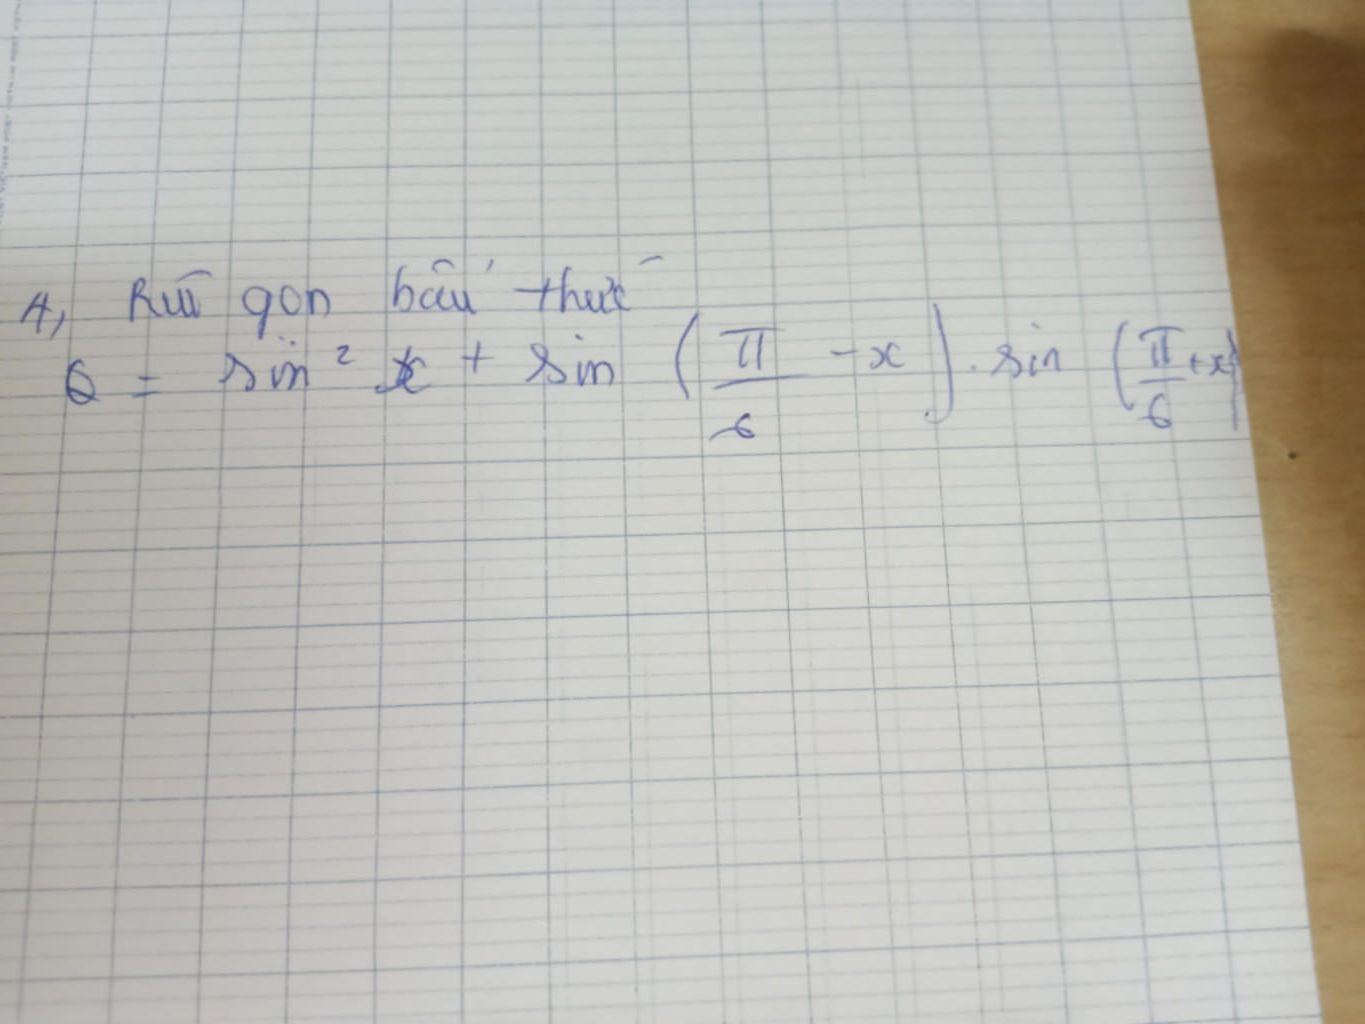 4, Rút gọn bấu thức
Q = sin² x + sin (π/6 - x) . sin (π/6 + x)